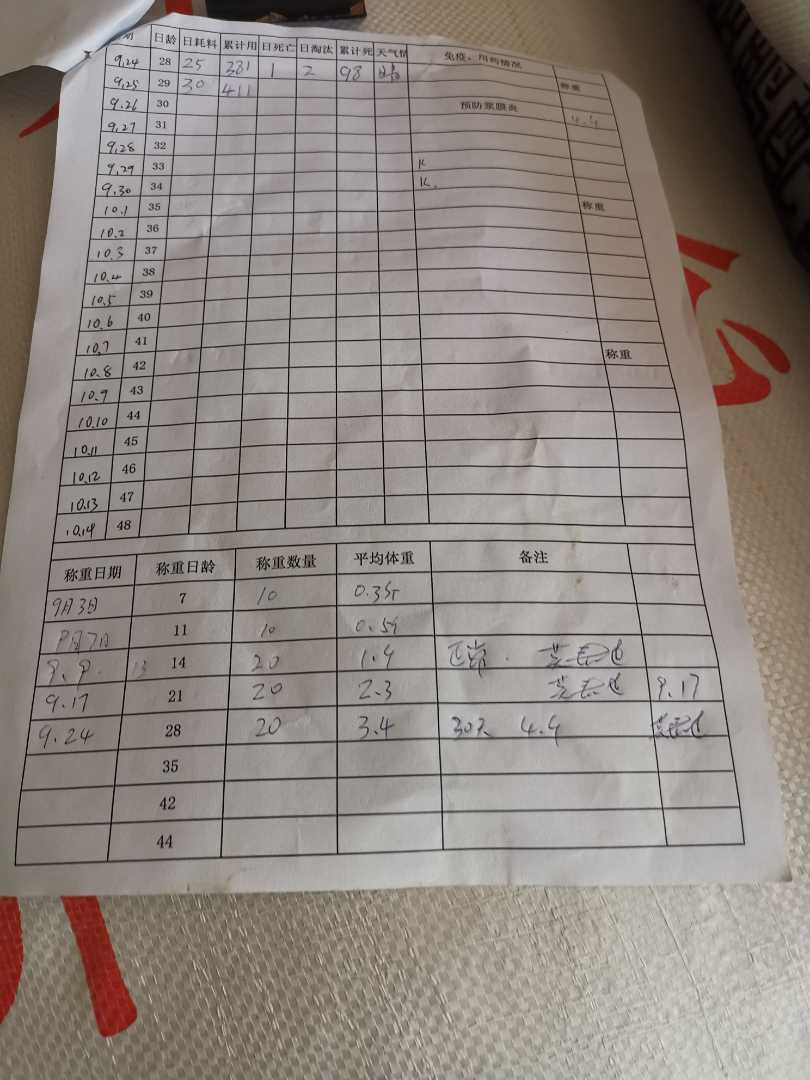 期 日龄 日耗料 累计用 日死亡 日淘汰 累计死 天气情 免疫、用药情况
9.24 28 25 381 1 2 98 晴
9.25 29 30 411 称重
9.26 30 预防浆膜炎
9.27 31 4.4
9.28 32
9.29 33 K
9.30 34 K.
10.1 35 称重
10.2 36
10.3 37
10.4 38
10.5 39
10.6 40
10.7 41
10.8 42 称重
10.9 43
10.10 44
10.11 45
10.12 46
10.13 47
10.14 48
称重日期 称重日龄 称重数量 平均体重 备注
9月3日 7 10
11 10
9.9. 13 14 20 1.4 正常.
9.17 21 20 2.3 9.17
9.24 28 20 3.4 30天 4.4
35
42
44